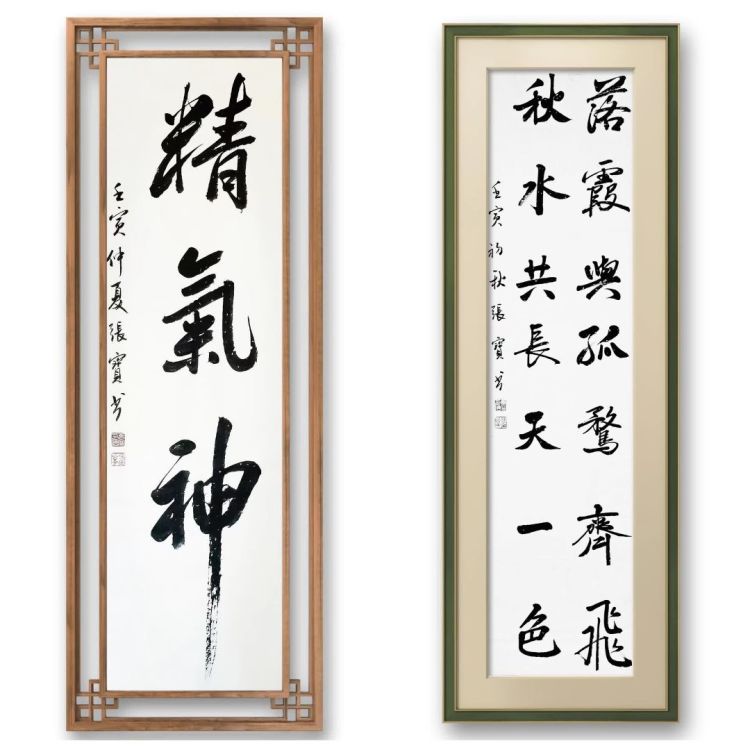 精氣神
壬寅仲夏張寶書
落霞與孤鶩齊飛
秋水共長天一色
壬寅初秋張寶書